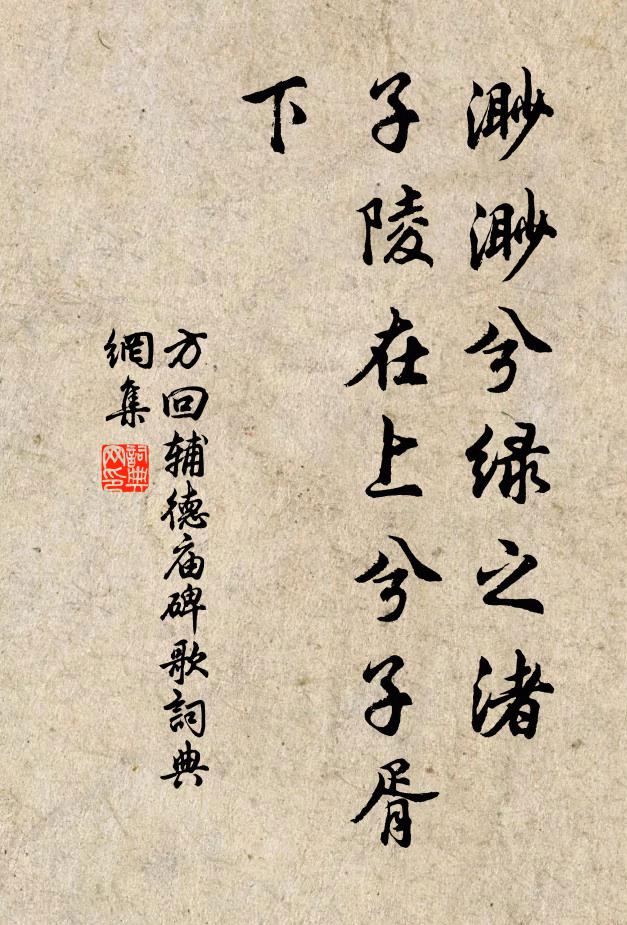 渺渺兮绿之渚
子陵在上兮子胥
下
方回辅德庙碑歌詞典
網集
詞典
网印